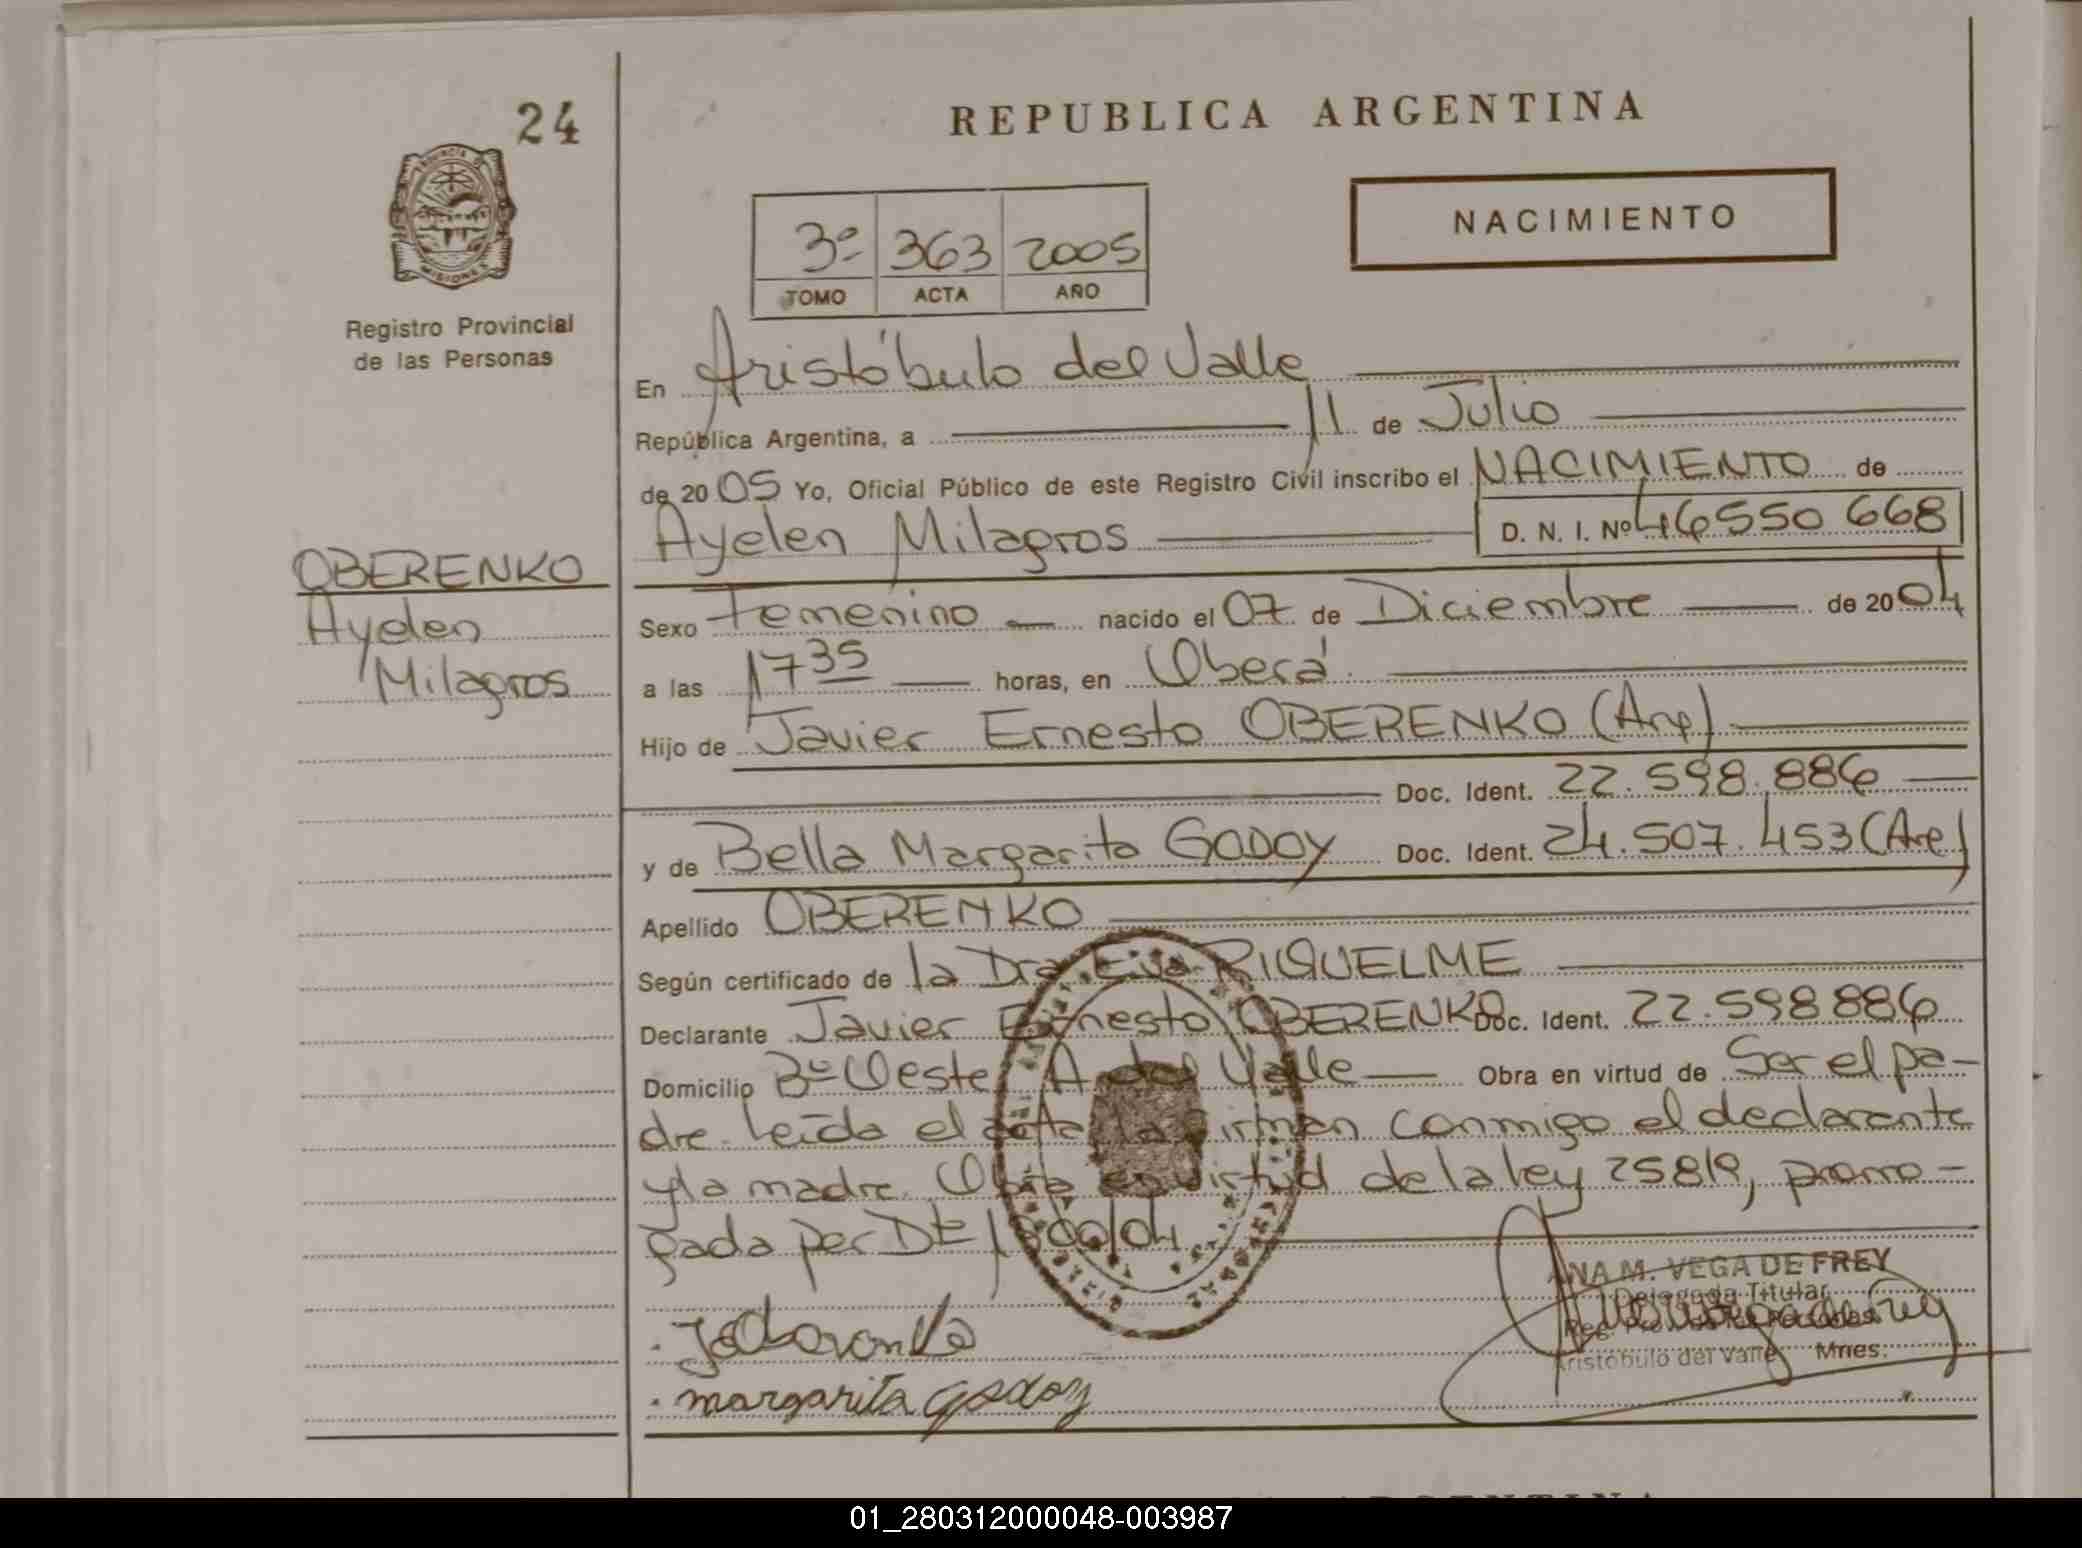 24
REPUBLICA ARGENTINA
PROVINCIA DE
MISIONES
NACIMIENTO
3º 363 2005
TOMO ACTA AÑO
Registro Provincial
de las Personas
En Aristóbulo del Valle
República Argentina, a 11 de Julio
de 2005 Yo, Oficial Público de este Registro Civil inscribo el NACIMIENTO de
Ayelen Milagros D. N. I. Nº 46550668
OBERENKO
Ayelen
Milagros
Sexo Femenino nacido el 07 de Diciembre de 2004
a las 17 35 horas, en Oberá
Hijo de Javier Ernesto OBERENKO (Arg)
Doc. Ident. 22.598.886
y de Bella Margarita GODOY Doc. Ident. 24.507.453 (Arg)
Apellido OBERENKO
Según certificado de la Dra Eva RIQUELME
Declarante Javier Ernesto OBERENKO Doc. Ident. 22.598886
Domicilio Bº Oeste A. del Valle Obra en virtud de Ser el pa-
dre. Leída el acta la firman conmigo el declarante
y la madre. Obra en virtud de la ley 25819, prorro-
gada por Dto
ANA M. VEGA DE FREY
Delegada Titular
Aristóbulo del Valle Mnes.
margarita Godoy
01_280312000048-003987